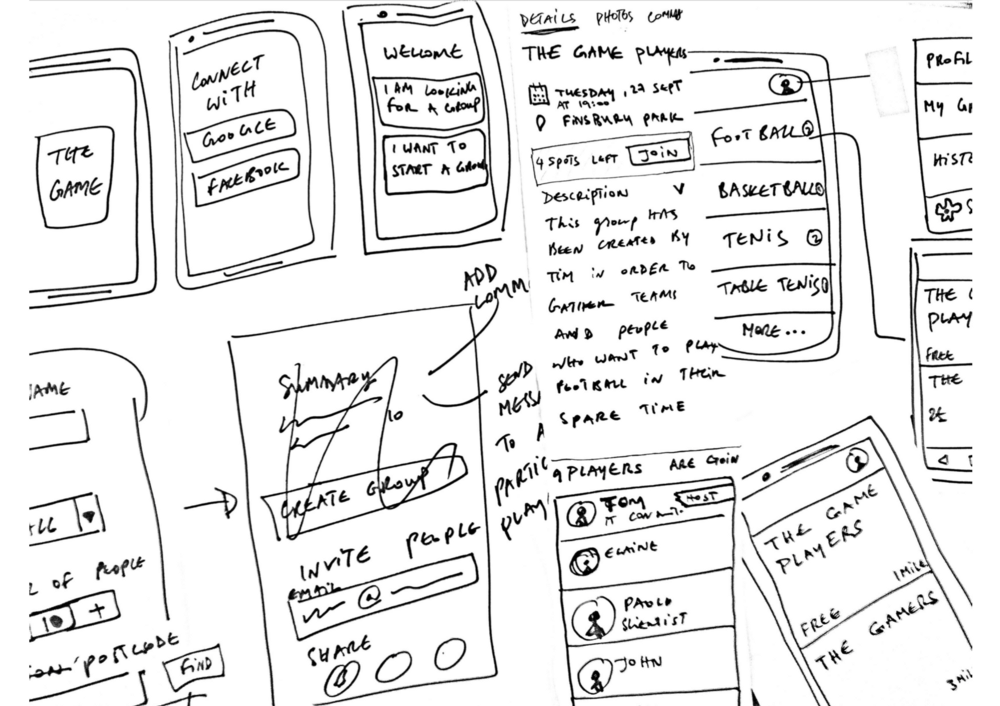 THE
GAME
CONNECT
WITH
GOOGLE
FACEBOOK
WELCOME
I AM LOOKING
FOR A GROUP
I WANT TO
START A GROUP
DETAILS PHOTOS
THE GAME PLAYERS
TUESDAY, 27 SEPT
AT 19:00
FINSBURY PARK
4 SPOTS LEFT JOIN
DESCRIPTION
This group HAS
BEEN CREATED BY
TIM IN ORDER TO
GATHER TEAMS
AND PEOPLE
WHO WANT TO PLAY
FOOTBALL IN THEIR
SPARE TIME
9 PLAYERS ARE GOIN
TOM HOST
ELAINE
PAOLO
SCIENTIST
JOHN
FOOTBALL 2
BASKETBALL
TENIS 2
TABLE TENIS
MORE...
PROFIL
MY G
HIST
S
THE G
PLAY
FREE
THE
THE GAME
PLAYERS
1 MILE
FREE
THE GAMERS
3 MIL
NAME
ALL
R OF PEOPLE
10 +
POSTCODE
FIND
SUMMARY
10
CREATE GROUP
INVITE PEOPLE
EMAIL
@
SHARE
ADD
COMM
SEND
MESS
TO A
PARTIC
PLAY